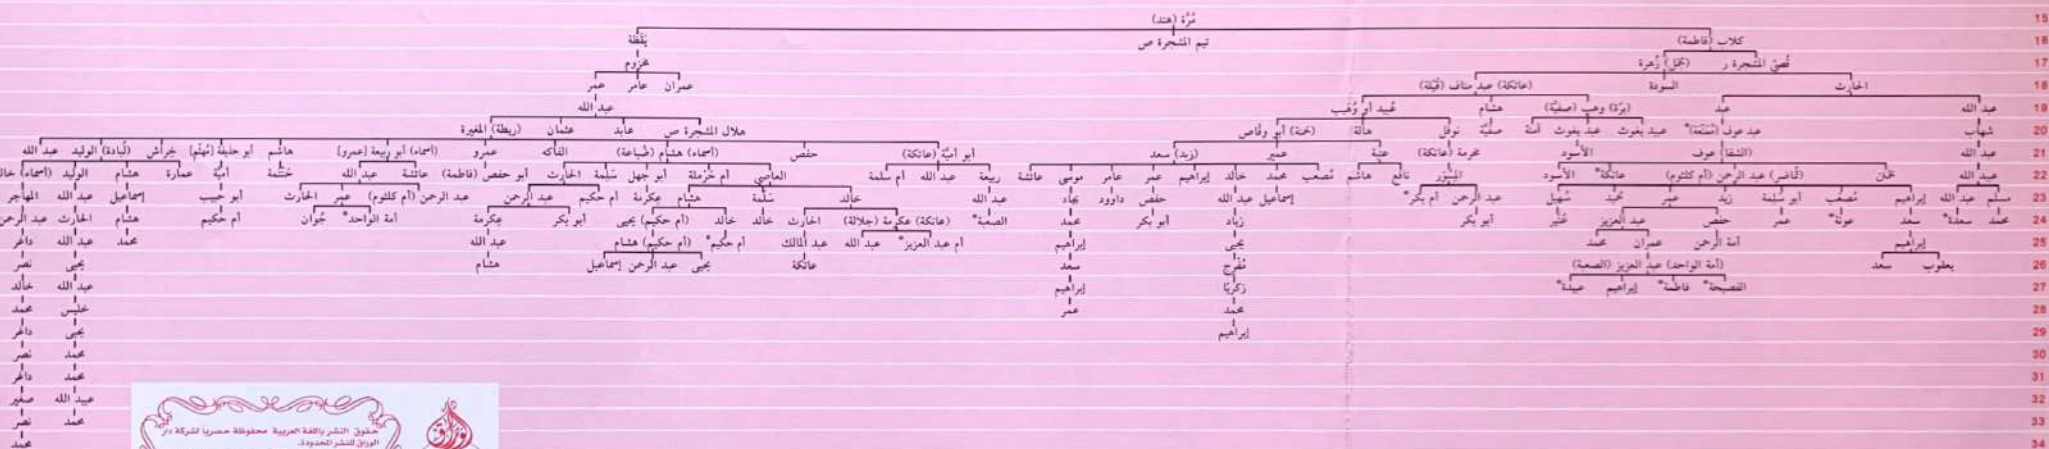 مُرَّة (هند) 15
كلاب (فاطمة) تيم المشجرة ص يَقَظة 16
قُصيّ المشجرة ر (جُمْل) زُهرة مخزوم 17
الحارث السودة (عاتكة) عبد مناف (قَيْلة) عمران عامر عمر 18
عبد الله عبد (برّة) وهب (صفيّة) هشام عُبيد أو وُهَيب عبد الله 19
شهاب عبد عوف عبيد يغوث عبد يغوث آمنة صفيّة نوفل هالة (حَمنة) أبو وقاص هلال المشجرة ص عابد عثمان (ريطة) المغيرة 20
عبد الله (الشفا) عوف الأسود مخرمة (عاتكة) عتبة عمير (زيد) سعد أبو أميّة (عاتكة) حفص (أسماء) هشام (ضُباعة) الفاكه عمرو (أسماء) أبو ربيعة [عمرو] هاشم أبو حذيفة [مُهشّم] خِراش الوليد عبد الله 21
عبد الله (تُماضر) عبد الرحمن (أم كلثوم) عاتكة* الأسود المِسْوَر نافع هاشم مُصعب محمد خالد إبراهيم عمر عامر موسى عائشة ربيعة عبد الله أم سلمة العاصي أم حَرْملة أبو جهل سَلِمة الحارث أبو حفص (فاطمة) عائشة عبد الله حَنتَمة أميّة عمارة هشام الوليد (أسماء) 22
مسلم عبد الله إبراهيم مُصعَب أبو سَلِمة زَيد عمر حُميد سُهيل عبد الرحمن أم بكر* إسماعيل عبد الله حفص داوود بجاد عبد الله خالد سَلَمة هشام عكرمة أم حكيم عبد الرحمن عبد الرحمن (أم كلثوم) عمر الحارث أبو حبيب إسماعيل عبد الله المهاجر 23
محمد سعدة* سعد عونة* عمر حفص عبد العزيز أبو بكر زياد أبو بكر محمد الصعبة* (عاتكة) عكرمة (جلالة) الحارث خالد خالد (أم حكيم) يحيى أبو بكر عِكرمة أمة الواحد* جُوان أم حَكيم هشام الحارث عبد الرحمن 24
إبراهيم أمة الرحمن عمران محمد يحيى إبراهيم أم عبد العزيز* عبد الله عبد المالك أم حكيم* (أم حكيم) هشام عبد الله محمد عبد الله داغر 25
يعقوب سعد (أمة الواحد) عبد العزيز (الصعبة) مُفرّج سعد عاتكة يحيى عبد الرحمن إسماعيل هشام يحيى نصر 26
الفصيحة* فاطمة* إبراهيم عبيدة* زكريّا إبراهيم عبد الله خالد 27
محمد عمر خليس محمد 28
إبراهيم يحيى داغر 29
محمد نصر 30
محمد داغر 31
عبيد الله صغير 32
محمد نصر 33
محمد 34
حقوق النشر باللغة العربية محفوظة حصريا لشركة دار
الوراق للنشر المحدودة.
الوراق